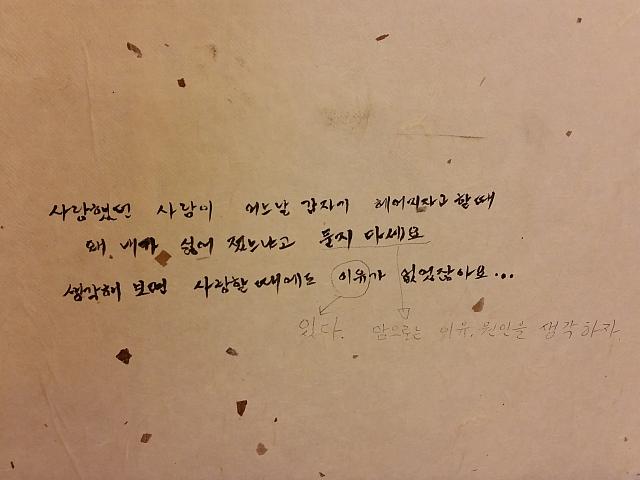 사랑했던 사람이 어느날 갑자기 헤어지자고 할때
왜 내가 싫어 졌느냐고 묻지 마세요
생각해 보면 사랑할 때에도 이유가 없었잖아요...
있다. 앞으로는 이유, 원인을 생각하자